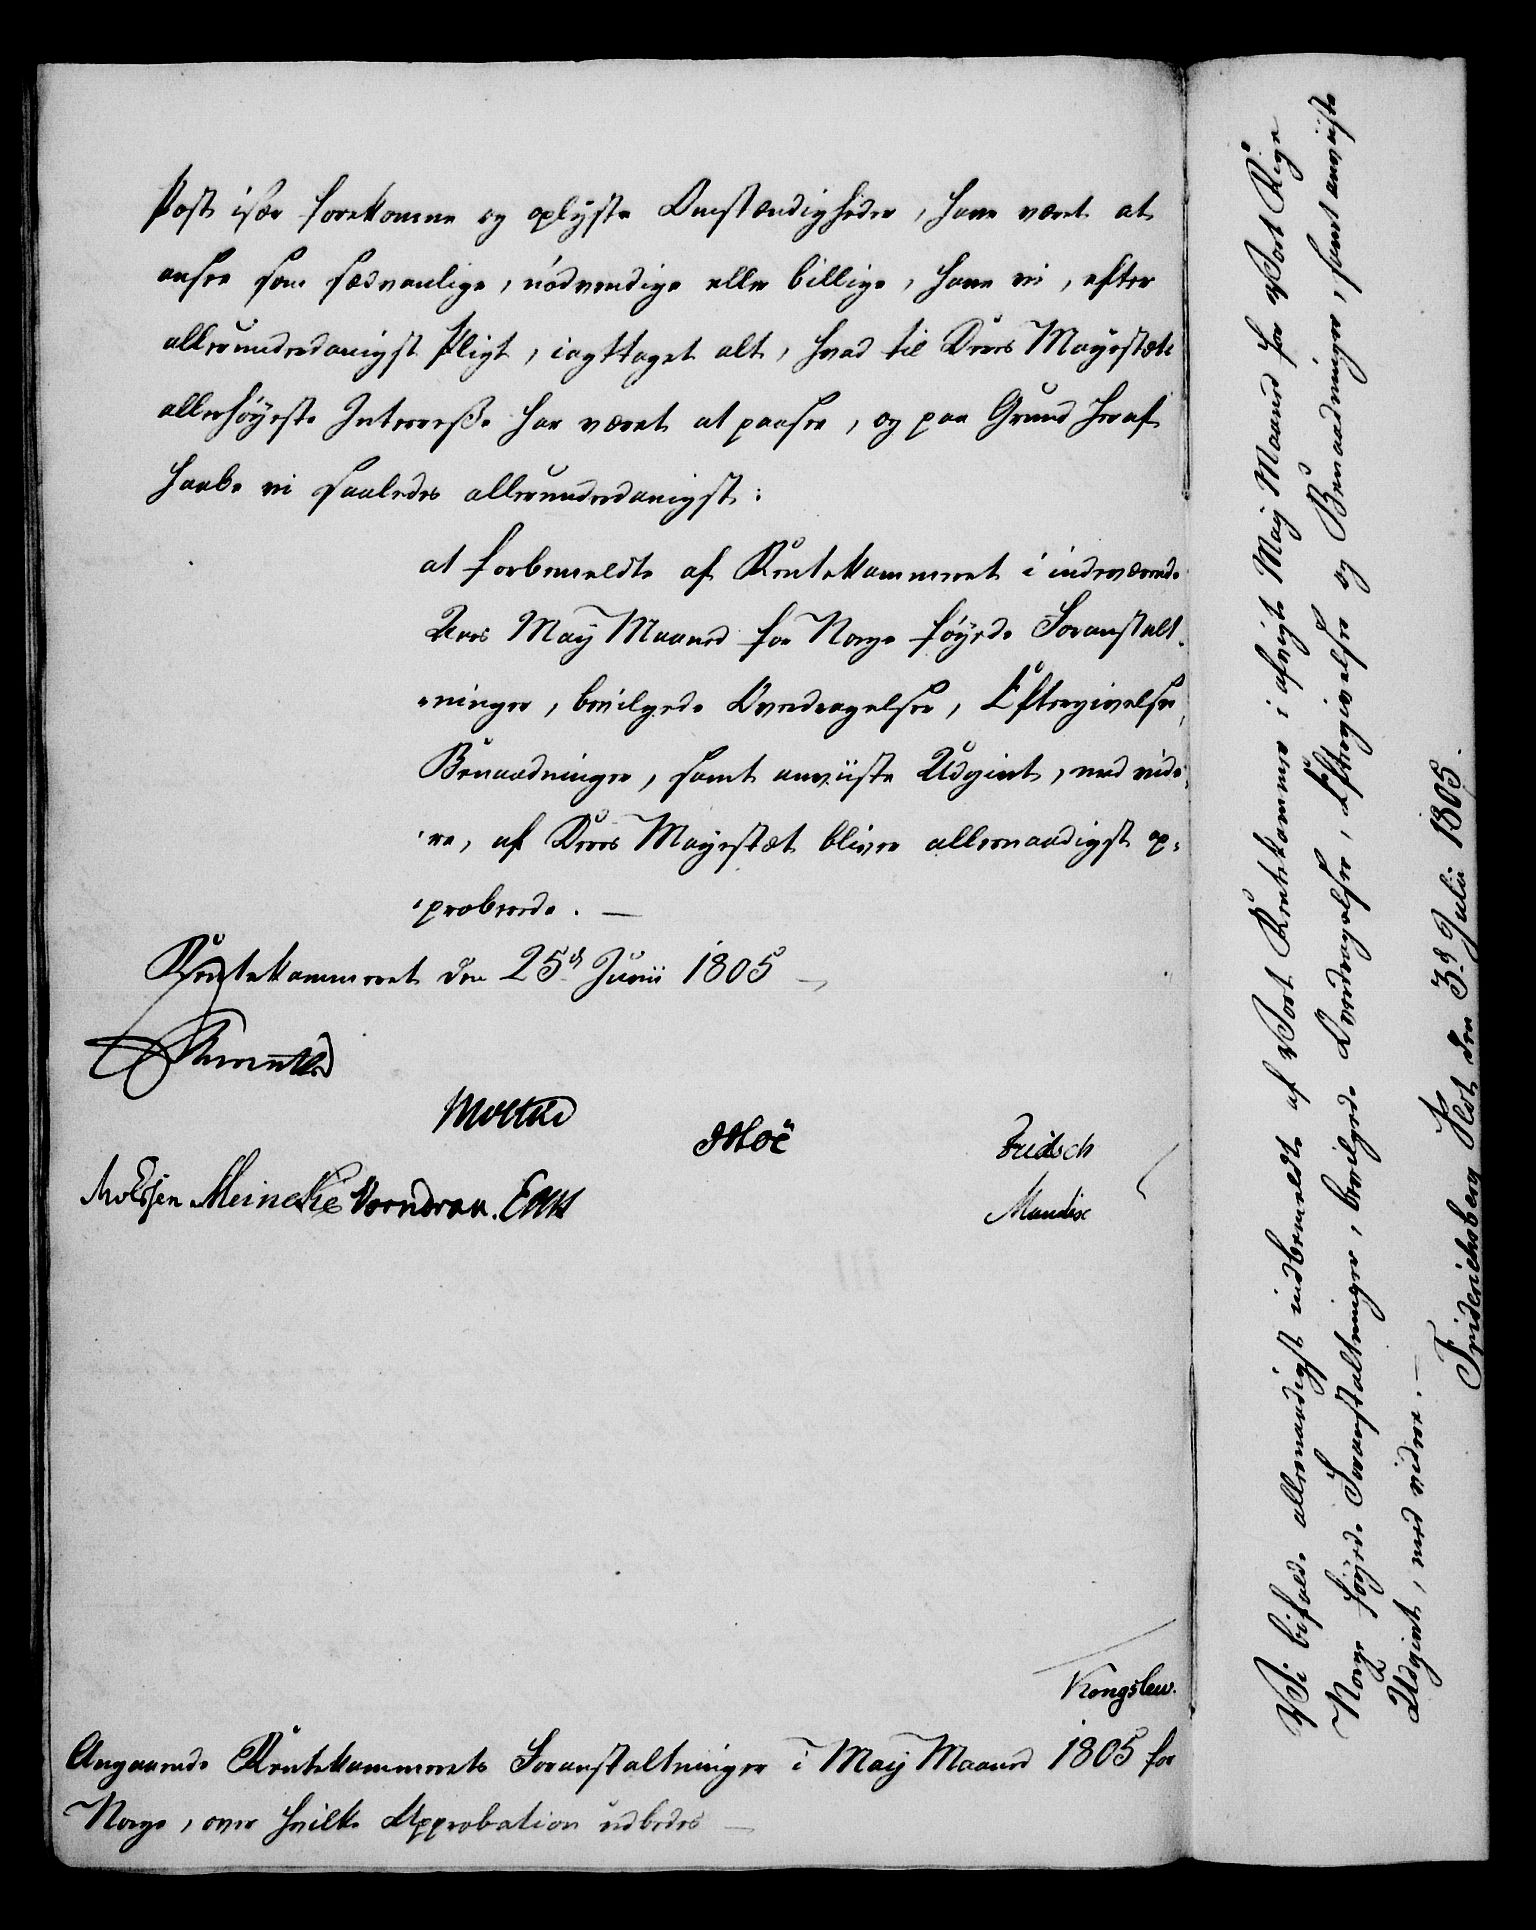 Post især forekomne og oplyste Omstændigheder, have været at
ansee som sædvanlige, nödvendige eller billige, have vi, efter
allerunderdanigst Pligt, iagttaget alt, hvad til Deres Majestæts
allerhøyeste Interesse har været at paasee, og paa Grund heraf
haabe vi saaledes allerunderdanigst:
at forbemeldte af Rentekammeret i indeværende
Aars Maÿ Maaned for Norge føyede Foranstalt-
ninger, bevilgede Overdragelser, Eftergivelser,
Benaadninger, samt anviiste Udgivt, med vide-
re, af Deres Majestæt bliver allernaadigst ap-
proberede. —
Rentekammeret den 25d Junii 1805 —
Reventlow
Moltke
JMoë
Fridsch
Meineke Wormdran.
Mandix
Kongslew.
Angaaende Rentekammerets Foranstaltninger i Maÿ Maaned 1805 for
Norge, over hvilke Approbation udbedes —
Vi bifalde allernaadigst indbemeldte af Vort Rentekammer i afvigte Maÿ Maaned for Vort Rige
Norge föyede Foranstaltninger, bevilgede Overdragelser, Eftergivelser og Benaadninger, samt anviiste
Udgivt, med videre. —
Friderichsberg Slot den 3d Julii 1805.